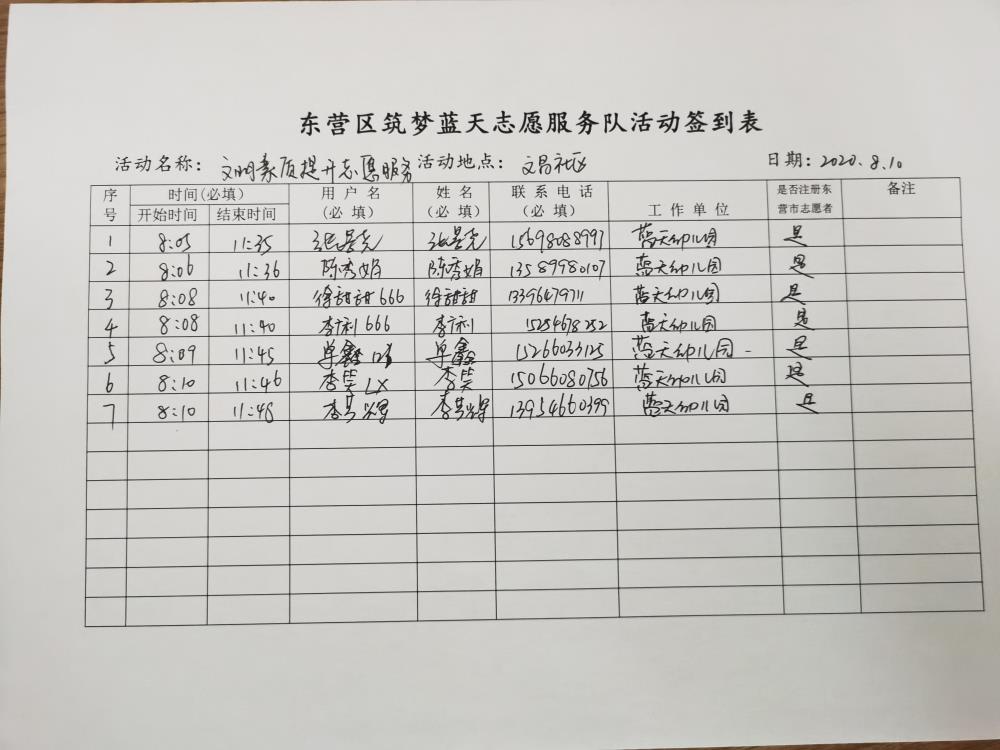 东营区筑梦蓝天志愿服务队活动签到表
活动名称：文明素质提升志愿服务 活动地点：文昌社区 日期：2020.8.10
序号 时间(必填) 用户名(必填) 姓名(必填) 联系电话(必填) 工作单位 是否注册东营市志愿者 备注
开始时间 结束时间
1 8:05 11:35 15698088997 蓝天幼儿园 是
2 8:06 11:36 陈秀娟 陈秀娟 13589980107 蓝天幼儿园 是
3 8:08 11:40 徐甜甜666 徐甜甜 13396479711 蓝天幼儿园 是
4 8:08 11:40 李利666 李利 15254678252 蓝天幼儿园 是
5 8:09 11:45 单鑫 单鑫 15266033125 蓝天幼儿园 是
6 8:10 11:46 李笑LX 李笑 15066080756 蓝天幼儿园 是
7 8:10 11:48 13954660399 蓝天幼儿园 是